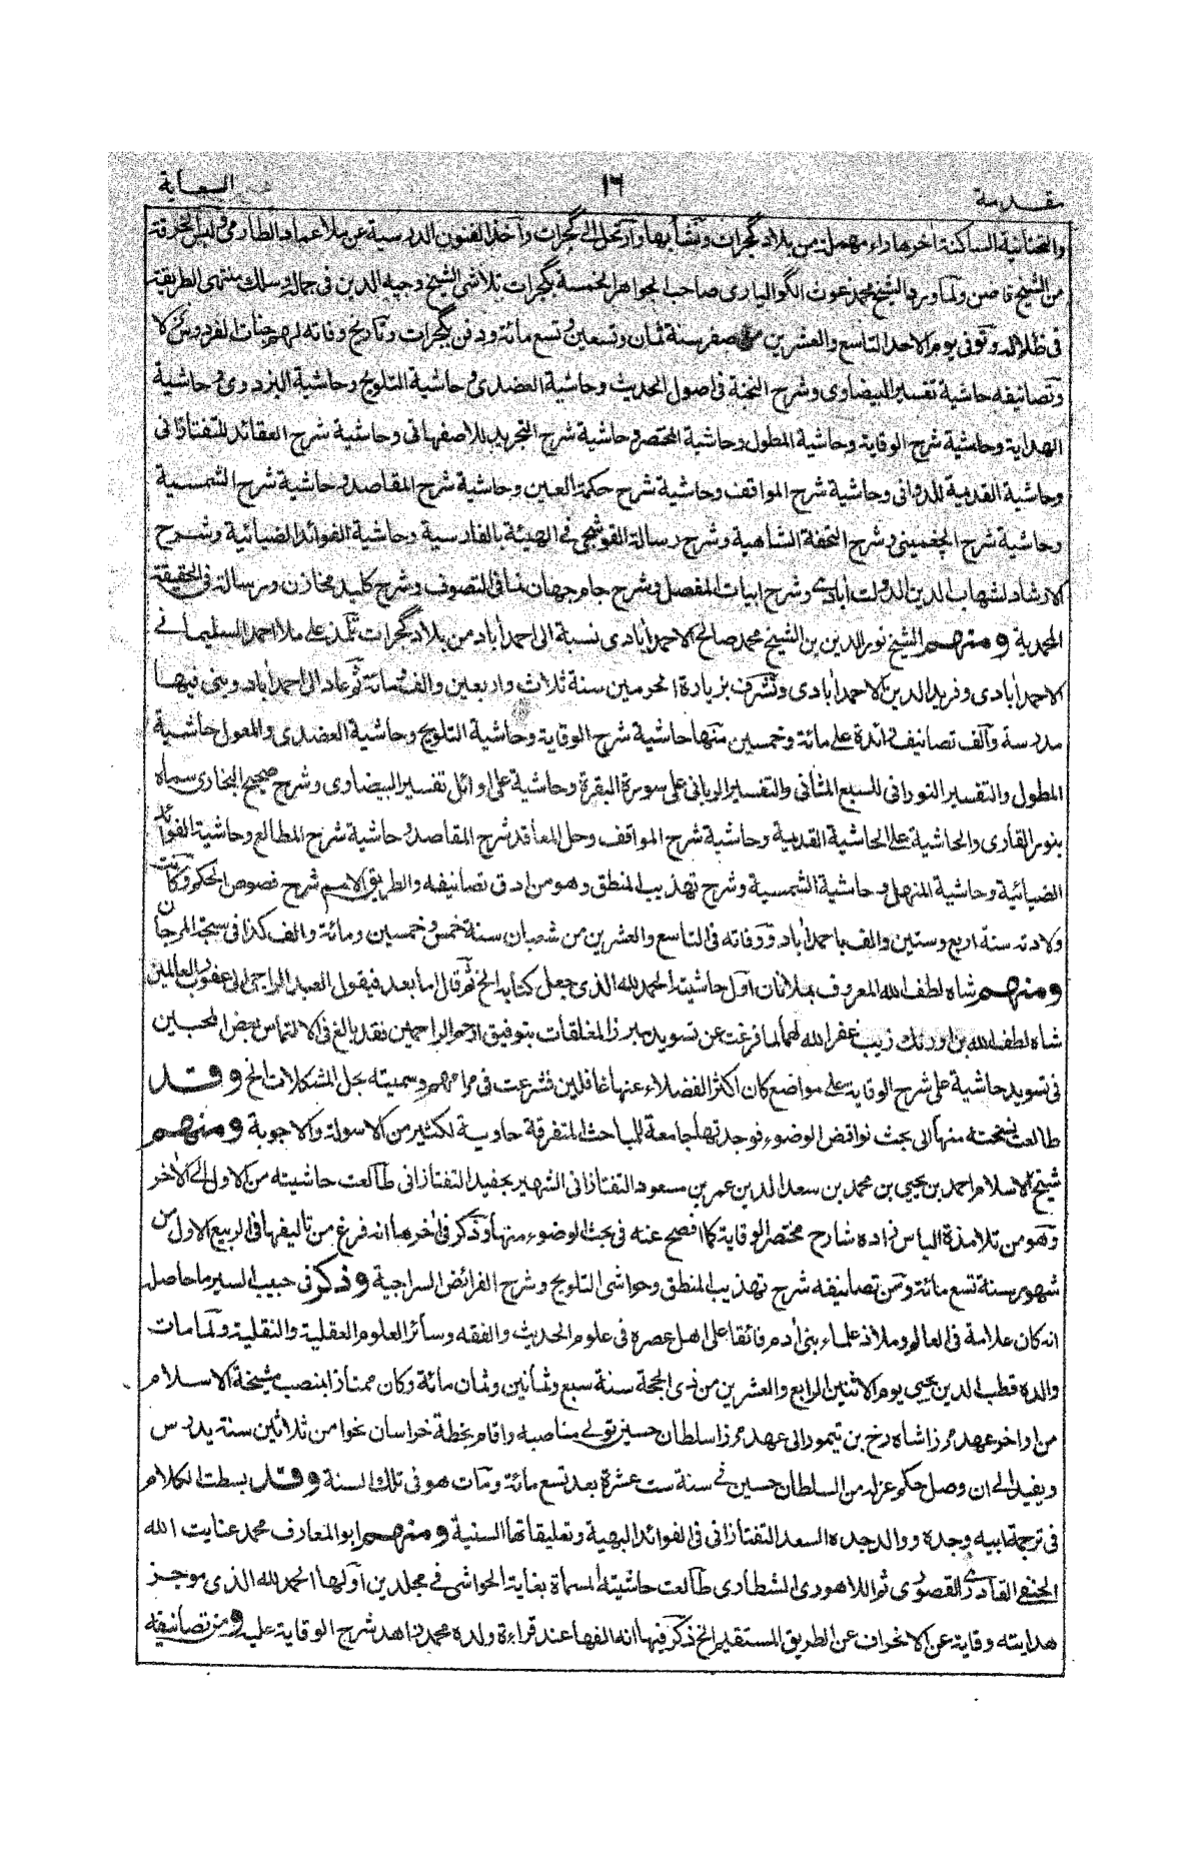 مقدمة ١٦ السعاية
والتحتانية الساكنة اخرها داء مهملة من بلاد گجرات ونشأ بها وارتحل الى گجرات واخذ الفنون الدرسية عن ملا عماد الطارمى ولبس الخرقة
من الشيخ قاضن ولما ورد بها الشيخ محمد غوث الگواليارى صاحب الجواهر الخمسة بگجرات تلاشى الشيخ وجيه الدين فى جماله وسلك منتهى الطريقة
فى ظلاله وتوفى يوم الاحد التاسع والعشرين من صفر سنة ثمان وتسعين وتسع مائة ودفن بگجرات وتاريخ وفاته لهم جنات الفردوس نزلا
وتصانيفه حاشية تفسير البيضاوى وشرح النخبة فى اصول الحديث وحاشية العضدى وحاشية التلويح وحاشية البزدوى وحاشية
الهداية وحاشية شرح الوقاية وحاشية المطول وحاشية المختصر وحاشية شرح التجريد للاصفهانى وحاشية شرح العقائد للتفتازانى
وحاشية القديمة للدوانى وحاشية شرح المواقف وحاشية شرح حكمة العين وحاشية شرح المقاصد وحاشية شرح الشمسية
وحاشية شرح الچغمينى وشرح التحفة الشاهية وشرح رسالة القوشجى فى الهيئة بالفارسية وحاشية الفوائد الضيائية وشرح
الارشاد لشهاب الدين الدولت ابادى وشرح ابيات المفصل وشرح جام جهان نما فى التصوف وشرح كليد مخازن ورسالة فى الحقيقة
المحمدية ومنهم الشيخ نور الدين بن الشيخ محمد صالح الاحمدابادى نسبة الى احمداباد من بلاد گجرات تلمذ على ملا احمد السليمانى
الاحمدابادى وفريد الدين الاحمدابادى وتشرف بزيارة الحرمين سنة ثلاث واربعين والف ومائة ثم عاد الى احمداباد وبنى فيها
مدرسة والف تصانيف زائدة على مائة وخمسين منها حاشية شرح الوقاية وحاشية التلويح وحاشية العضدى والمعول حاشية
المطول والتفسير النورانى للسبع المثانى والتفسير الربانى على سورة البقرة وحاشية على اوائل تفسير البيضاوى وشرح صحيح البخارى سماه
بنور القارى والحاشية على الحاشية القديمة وحاشية شرح المواقف وحل المعاقد شرح المقاصد وحاشية شرح المطالع وحاشية الفوائد
الضيائية وحاشية المنهل وحاشية الشمسية وشرح تهذيب المنطق وهو من ادق تصانيفه والطريق الامم شرح فصوص الحكم وكانت
ولادته سنة اربع وستين والف باحمداباد ووفاته فى التاسع والعشرين من شعبان سنة خمس وخمسين ومائة والف كذا فى سبحة المرجان
ومنهم شاه لطف الله المعروف بملانان اول حاشيته الحمد لله الذى جعل كتابه الخ ثم قال اما بعد فيقول العبد الراجى الى عفو رب العالمين
شاه لطف الله بن اورنك زيب غفر الله لهما لما فرغت عن تسويد مبرز المغلقات بتوفيق ارحم الراحمين فقد بالغ فى الالتماس بعض المحبين
فى تسويد حاشية على شرح الوقاية على مواضع كان اكثر الفضلاء عنها غافلين فشرعت فى مرامهم وسميته بحل المشكلات الخ وقد
طالعت نسخته منها الى بحث نواقض الوضوء فوجدتها جامعة للمباحث المتفرقة حاوية لكثير من الاسولة والاجوبة ومنهم
شيخ الاسلام احمد بن يحيى بن محمد بن سعد الدين عمر بن مسعود التفتازانى الشهير بحفيد التفتازانى طالعت حاشيته من الاول الى الاخر
وهو من تلامذة الياس زاده شارح مختصر الوقاية كما افصح عنه فى بحث الوضوء منها وذكر فى اخرها انه فرغ من تاليفها فى الربيع الاول من
شهور سنة تسع مائة ومن تصانيفه شرح تهذيب المنطق وحواشى التلويح وشرح الفرائض السراجية وذكر فى حبيب السير ما حاصله
انه كان علامة فى العالم وملاذ علماء بنى ادم فائقا على اهل عصره فى علوم الحديث والفقه وسائر العلوم العقلية والنقلية ولما مات
والده قطب الدين يحيى يوم الاثنين الرابع والعشرين من ذى الحجة سنة سبع وثمانين وثمان مائة وكان ممتازا بمنصب مشيخة الاسلام
من اواخر عهد مرزا شاه رخ بن تيمور الى عهد مرزا سلطان حسين تولى مناصبه واقام بخطة خراسان نحوا من ثلاثين سنة يدرس
ويفيد الى ان وصل حكم عزله من السلطان حسين فى سنة ست عشرة بعد تسع مائة ومات هو فى تلك السنة وقد بسطت الكلام
فى ترجمة ابيه وجده ووالد جده السعد التفتازانى فى الفوائد البهية وتعليقاتها السنية ومنهم ابو المعارف محمد عنايت الله
الحنفى القادرى القصورى ثم اللاهورى الشطارى طالعت حاشيته المسماة بغاية الحواشى فى مجلدين اولها الحمد لله الذى موجز
هدايته وقاية عن الانحراف عن الطريق المستقيم الخ ذكر فيها انه الفها عند قراءة ولده محمد زاهد شرح الوقاية عليه ومن تصانيفه